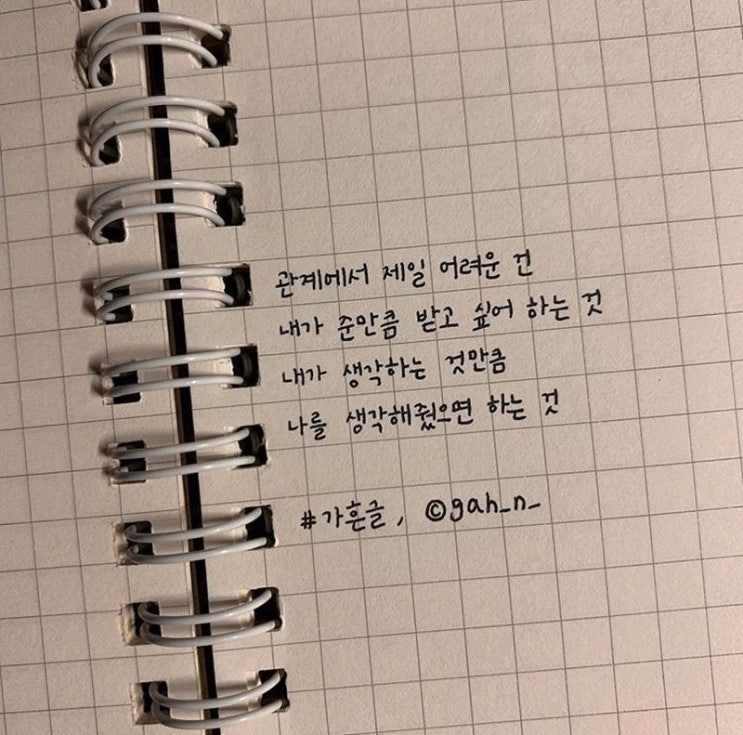 관계에서 제일 어려운 건
내가 준만큼 받고 싶어 하는 것
내가 생각하는 것만큼
나를 생각해줬으면 하는 것
#가훈글, ©gah_n_